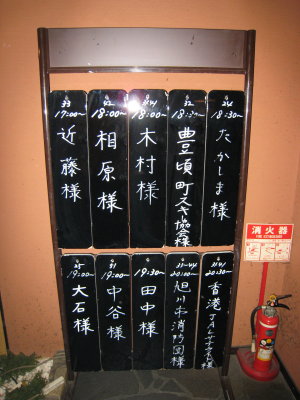 33
17:00〜
近藤様
42
18:00〜
相原様
34,41
18:00〜
木村様
32
18:30〜
豊頃町スキー協会様
24
18:30〜
たかしま様
25
19:00〜
大石様
21
19:00〜
中谷様
19:30〜
田中様
20:00〜
旭川市消防団様
20:30〜
香港JAL
様
消火器
FIRE EXTINGUISHER